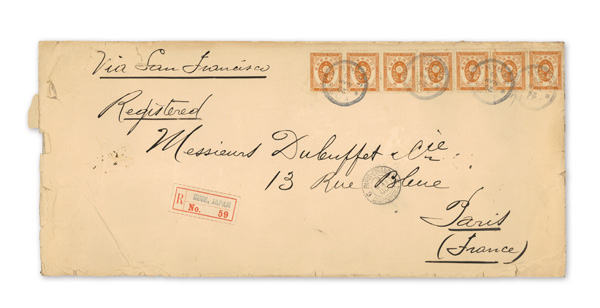 Via San Francisco
Registered
Messieurs Dubuffet & Cie
13 Rue Bleue
Paris
(France)
R
KOBE, JAPAN
No. 59